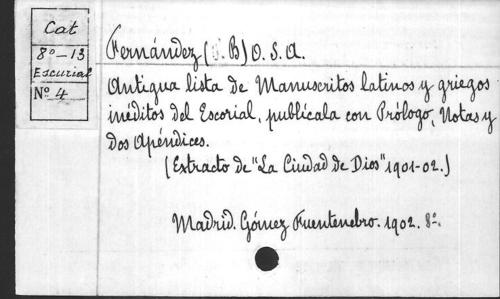 Cat
8º-13
Escurial
Nº 4
Fernández ( . B) O. S. A.
Antigua lista de Manuscritos latinos y griegos
inéditos del Escorial, publícala con Prólogo, Notas y
dos Apéndices.
(Extracto de "La Ciudad de Dios" 1901-02.)
Madrid. Gómez Fuentenebro. 1902. 8º.